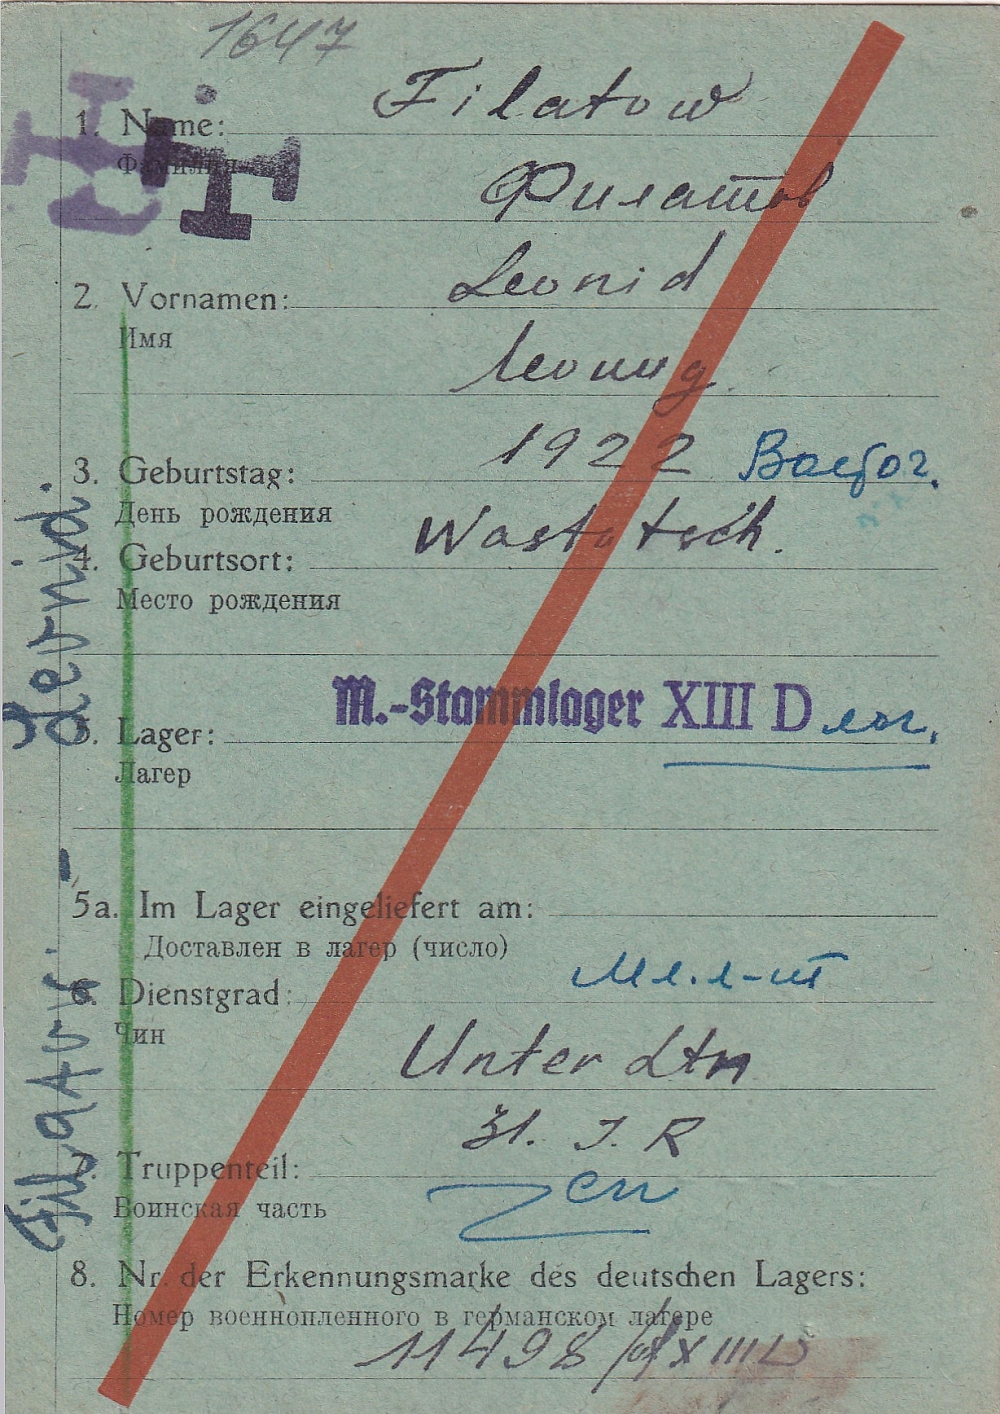 1647
Filatow
1. Name:
Фамилия
Филатов
Leonid
2. Vornamen:
Имя
Леонид
1922
3. Geburtstag:
День рождения
4. Geburtsort:
Место рождения
M.-Stammlager XIII D лаг.
5. Lager:
Лагер
5a. Im Lager eingeliefert am:
Доставлен в лагер (число)
Мл. л-т
6. Dienstgrad:
Чин
Unter Ltn
31. J. R
7. Truppenteil:
Воинская часть
8. Nr. der Erkennungsmarke des deutschen Lagers:
Номер военнопленного в германском лагере
11498 / XIII D
Leonid.